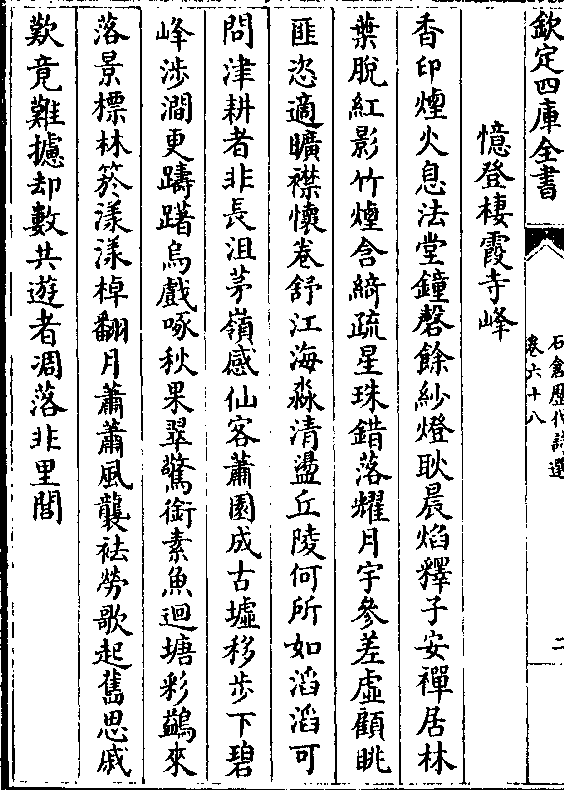 欽定四庫全書
石倉歷代詩選
卷六十八
二
憶登棲霞寺峰
香印煙火息法堂鐘磬餘紗燈耿晨焰釋子安禪居林
葉脫紅影竹煙含綺疏星珠錯落耀月宇參差虛顧眺
匪恣適曠襟懷卷舒江海淼清盪丘陵何所如滔滔可
問津耕者非長沮茅嶺感仙客蕭園成古墟移步下碧
峰涉澗更躊躇烏戲啄秋果翠驚銜素魚迴塘彩鷁來
落景標林菸漾漾棹翻月蕭蕭風襲袪勞歌起舊思戚
歎竟難攄却數共遊者凋落非里閭